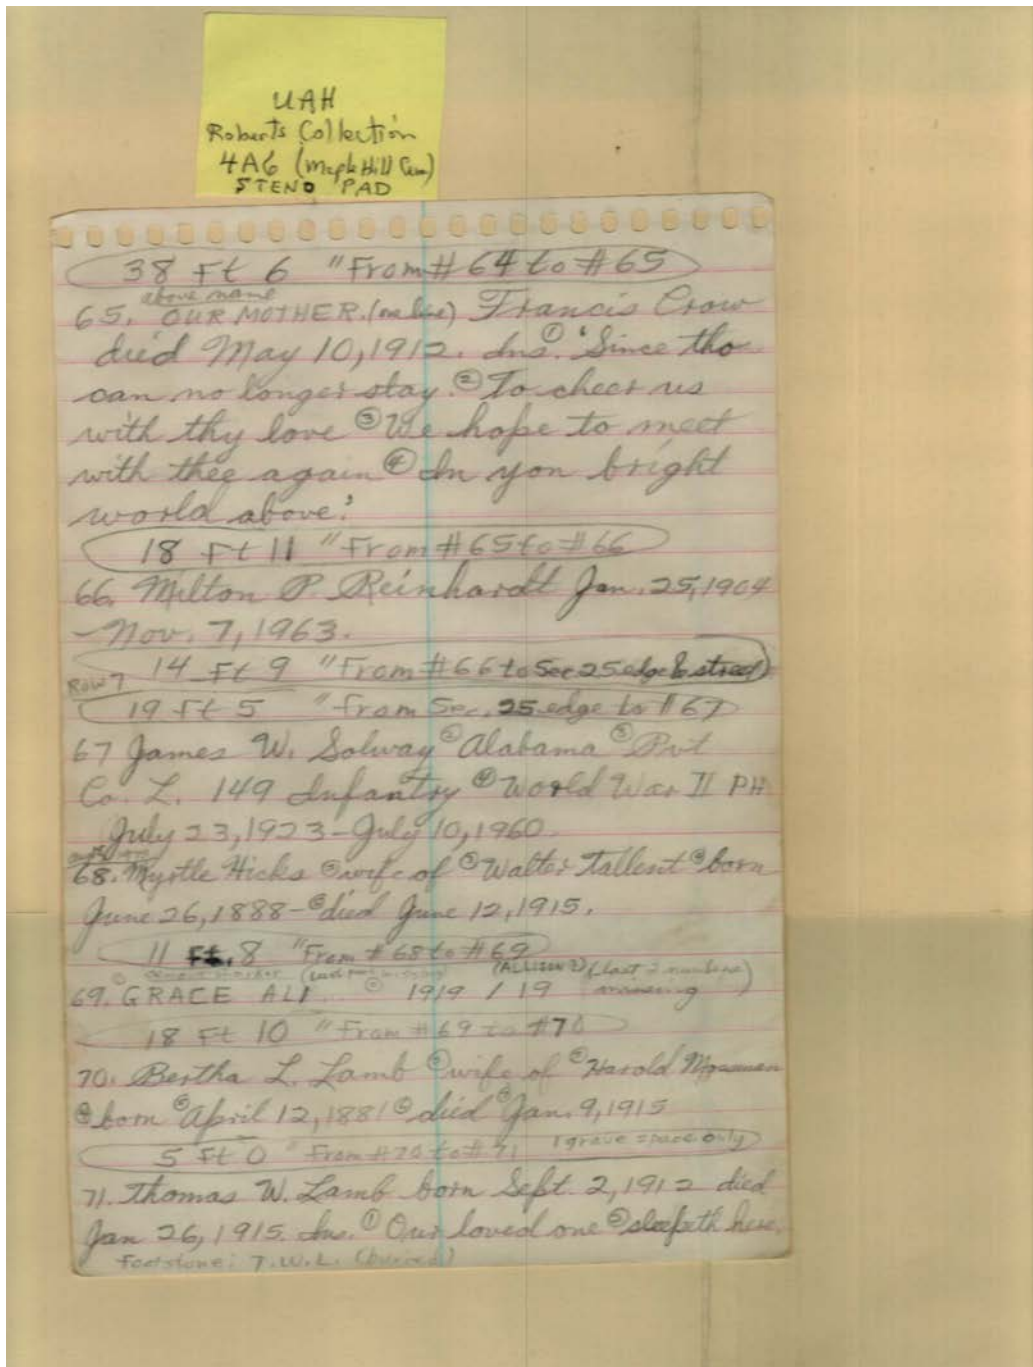 UAH
Roberts Collection
4A6 (Maple Hill Cem)
STENO PAD
38 Ft 6 "From #64 to #65
above name
65. OUR MOTHER. (one line) Francis Crow
died May 10, 1912. Ins. ① 'Since tho
can no longer stay. ② To cheer us
with thy love ③ We hope to meet
with thee again ④ In yon bright
world above.'
18 Ft 11 "From #65 to #66
66. Milton P. Reinhardt Jan. 25, 1904
- Nov. 7, 1963.
14 Ft 9 "From #66 to Sec 25 edge & street
Row 7
19 Ft 5 "From Sec. 25 edge to #67
67 James W. Solway ② Alabama ③ Pvt
Co. L. 149 Infantry ④ World War II PH
July 23, 1923 - July 10, 1960
68. Myrtle Hicks ② wife of ③ Walter Tallent ④ born
June 26, 1888 - ⑤ died June 12, 1915.
11 Ft. 8 "From #68 to #69
(ALLISON?) (last 2 numbers
69. GRACE ALI ② 1919 / 19 missing)
18 Ft 10 "From #69 to #70
70. Bertha L. Lamb ② wife of ③ Harold
④ born ⑤ April 12, 1881 ⑥ died Jan. 9, 1915
5 Ft 0 "From #70 to #71 1 grave space only
71. Thomas W. Lamb born Sept. 2, 1912 died
Jan 26, 1915. Ins. ① Our loved one ② sleepeth here.
Footstone: T.W.L. (buried)